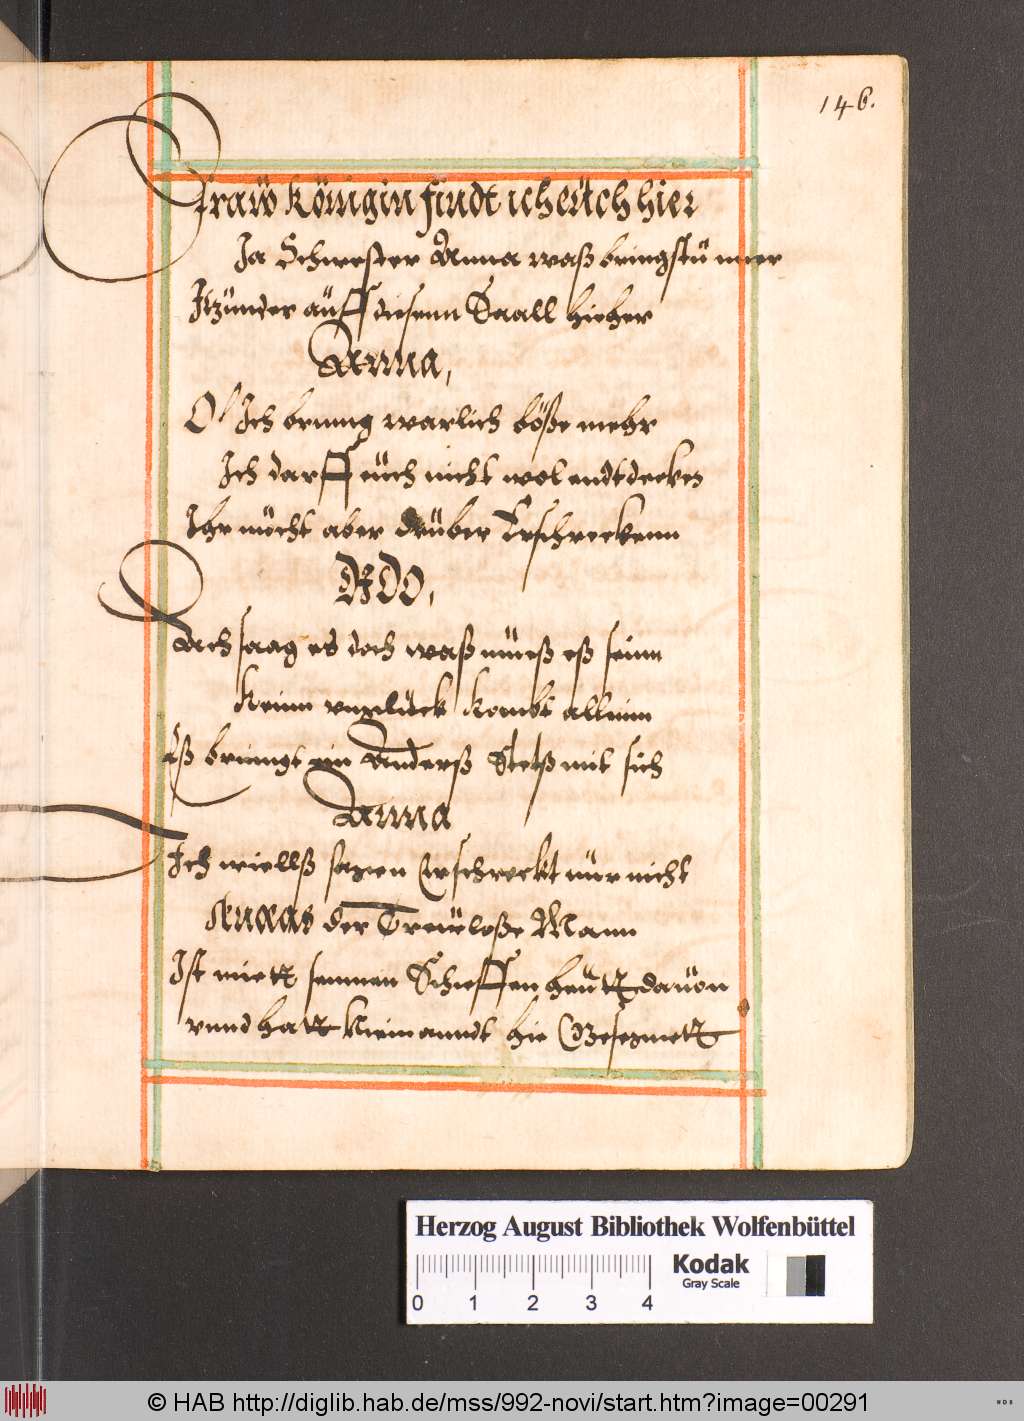 146.
Fraw Königin findt ich eüch hier
Ja Schwester Anna waß bringstü mier
Itzünder aüff diesenn Saall hieher
Anna,
O Ich brinng warlich böße mehr
Ich darff eüch nicht wol endtdecken
Ihr möcht aber drüber Erschreckenn
DIDO,
Ach saag es doch waß müeß eß seinn
Keinn vnglück kombt alleinn
Eß brinngt ein Anderß Stetß mit sich
Anna
Ich wiellß sagen Erschreckt nür nicht
Aeneas der Treüeloße Mann
Ist miett seinnen Schieffen heütt dauon
vnnd hatt Niemanndt hie Gesegnett
Herzog August Bibliothek Wolfenbüttel
Kodak
Gray Scale
0 1 2 3 4
© HAB http://diglib.hab.de/mss/992-novi/start.htm?image=00291